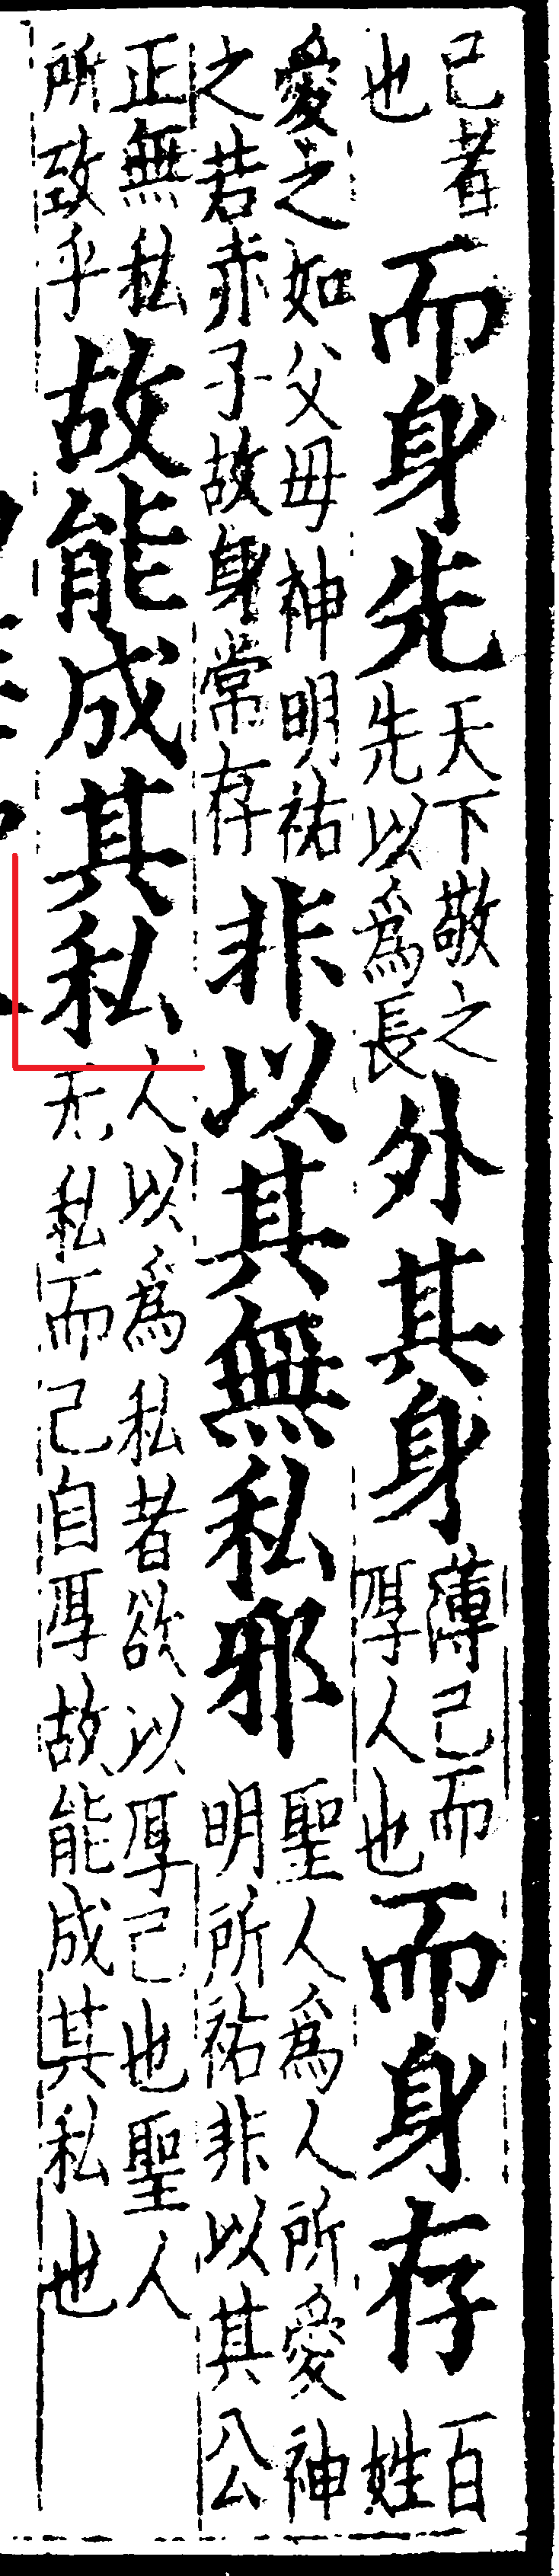 己者也而身先天下敬之先以爲長外其身薄己而厚人也而身存百姓
愛之如父母神明祐之若赤子故身常存非以其無私邪聖人爲人所愛神明所祐非以其公
正無私所致乎故能成其私人以爲私者欲以厚己也聖人无私而己自厚故能成其私也